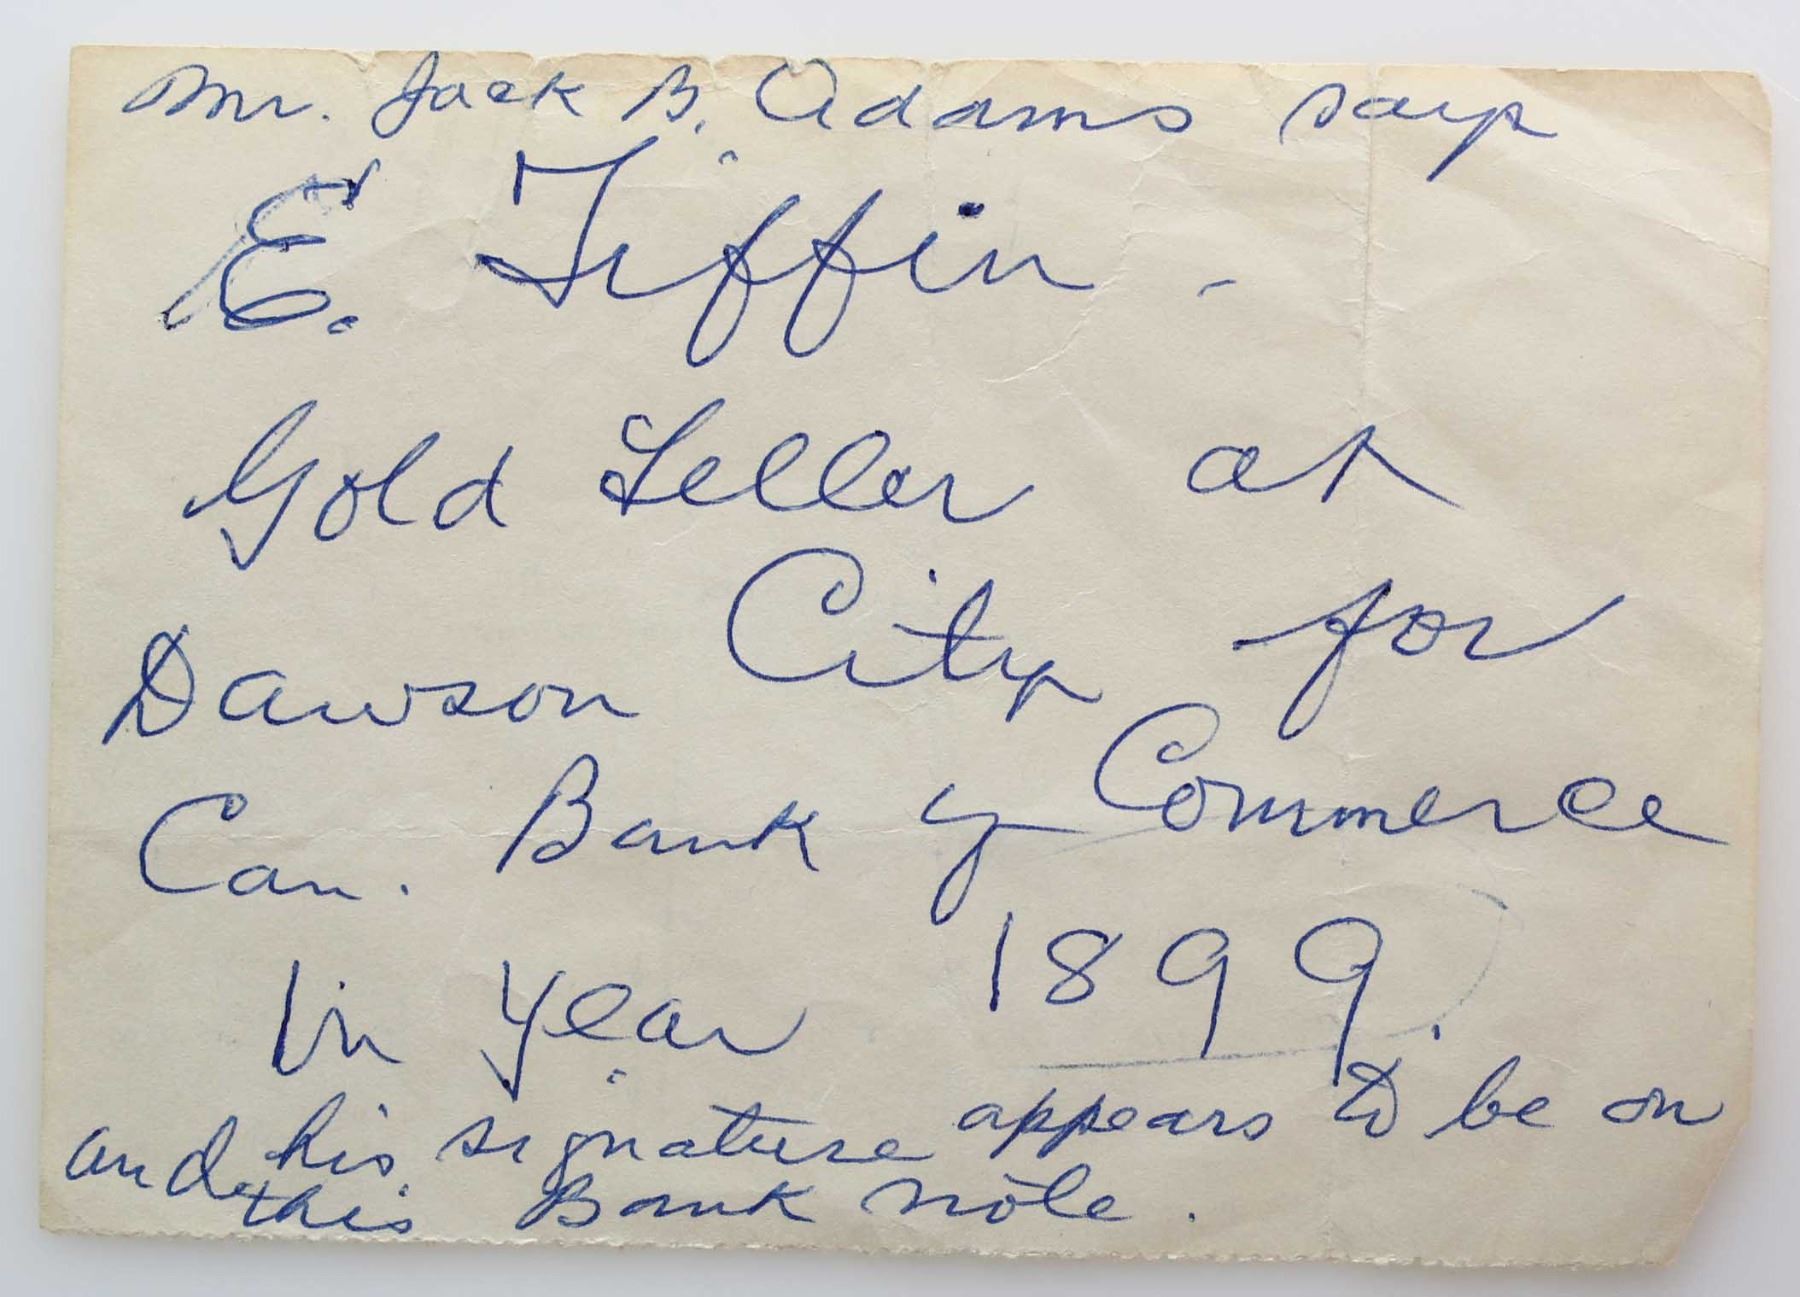 Mr. Jack B. Adams says
E. Tiffin -
Gold Teller at
Dawson City for
Can. Bank of Commerce
In year 1899.
and his signature appears to be on
this Bank note.